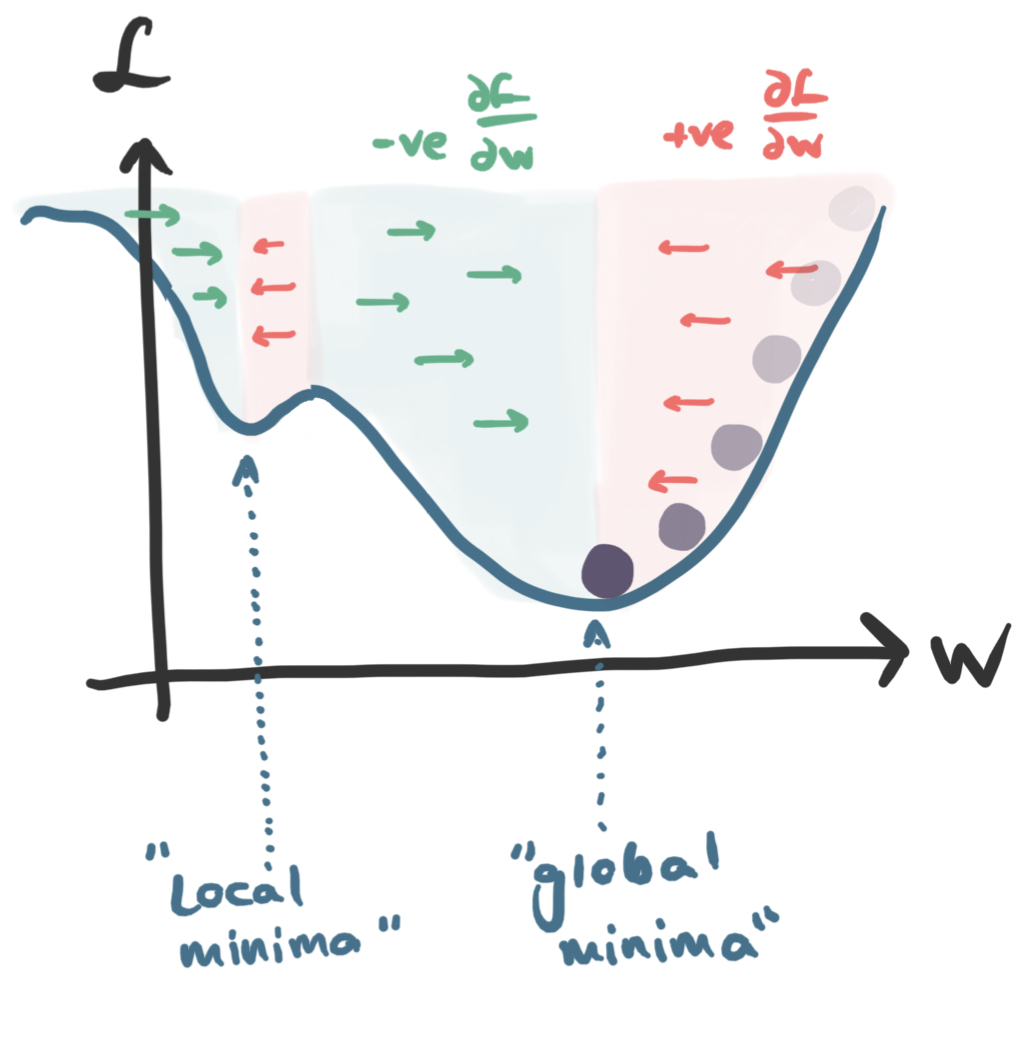 ℒ
-ve ∂ℒ/∂w
+ve ∂ℒ/∂w
W
"Local
minima"
"global
minima"